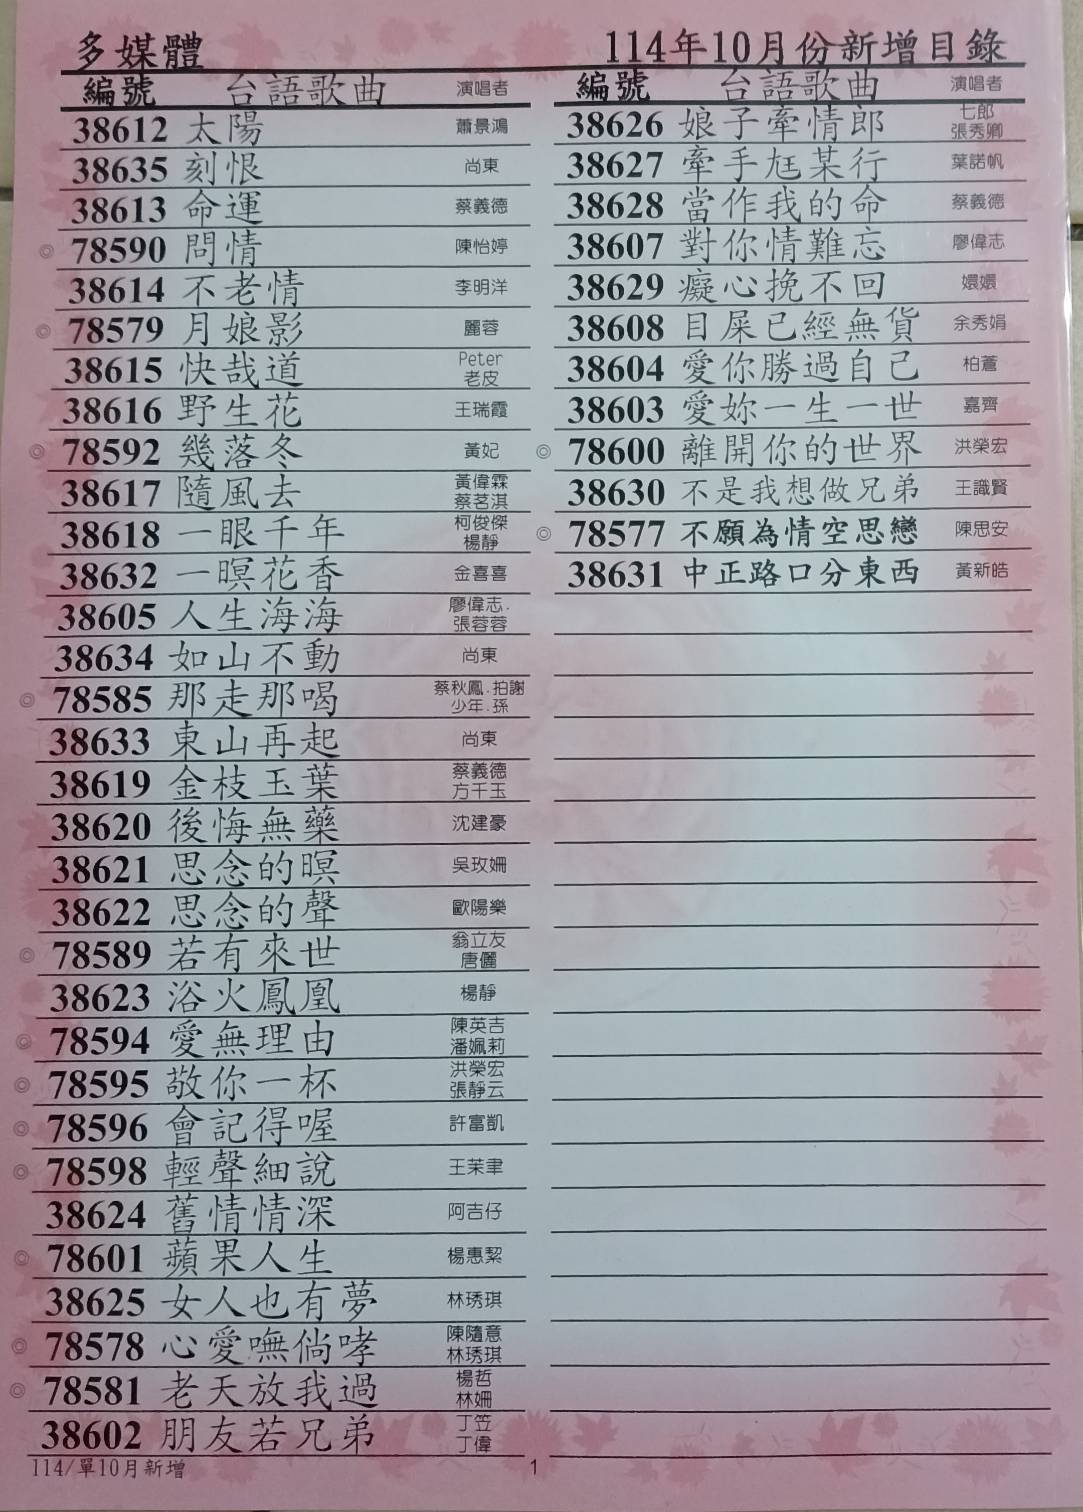 多媒體 114年10月份新增目錄
編號 台語歌曲 演唱者
38612 太陽 蕭景鴻
38635 刻恨 尚東
38613 命運 蔡義德
◎ 78590 問情 陳怡婷
38614 不老情 李明洋
◎ 78579 月娘影 麗蓉
38615 快哉道 Peter 老皮
38616 野生花 王瑞霞
◎ 78592 幾落冬 黃妃
38617 隨風去 黃偉霖 蔡茗淇
38618 一眼千年 柯俊傑 楊靜
38632 一暝花香 金喜喜
38605 人生海海 廖偉志.張蓉蓉
38634 如山不動 尚東
◎ 78585 那走那喝 蔡秋鳳.拍謝少年.孫
38633 東山再起 尚東
38619 金枝玉葉 蔡義德 方千玉
38620 後悔無藥 沈建豪
38621 思念的暝 吳玫姍
38622 思念的聲 歐陽樂
◎ 78589 若有來世 翁立友 唐儷
38623 浴火鳳凰 楊靜
◎ 78594 愛無理由 陳英吉 潘姵莉
◎ 78595 敬你一杯 洪榮宏 張靜云
◎ 78596 會記得喔 許富凱
◎ 78598 輕聲細說 王茉聿
38624 舊情情深 阿吉仔
◎ 78601 蘋果人生 楊惠絜
38625 女人也有夢 林琇琪
◎ 78578 心愛嘸倘哮 陳隨意 林琇琪
◎ 78581 老天放我過 楊哲 林姍
38602 朋友若兄弟 丁笠 丁偉
編號 台語歌曲 演唱者
38626 娘子牽情郎 七郎 張秀卿
38627 牽手尪某行 葉諾帆
38628 當作我的命 蔡義德
38607 對你情難忘 廖偉志
38629 癡心挽不回 嬛嬛
38608 目屎已經無貨 余秀娟
38604 愛你勝過自己 柏蒼
38603 愛妳一生一世 嘉齊
◎ 78600 離開你的世界 洪榮宏
38630 不是我想做兄弟 王識賢
◎ 78577 不願為情空思戀 陳思安
38631 中正路口分東西 黃新皓
114/單10月新增 1